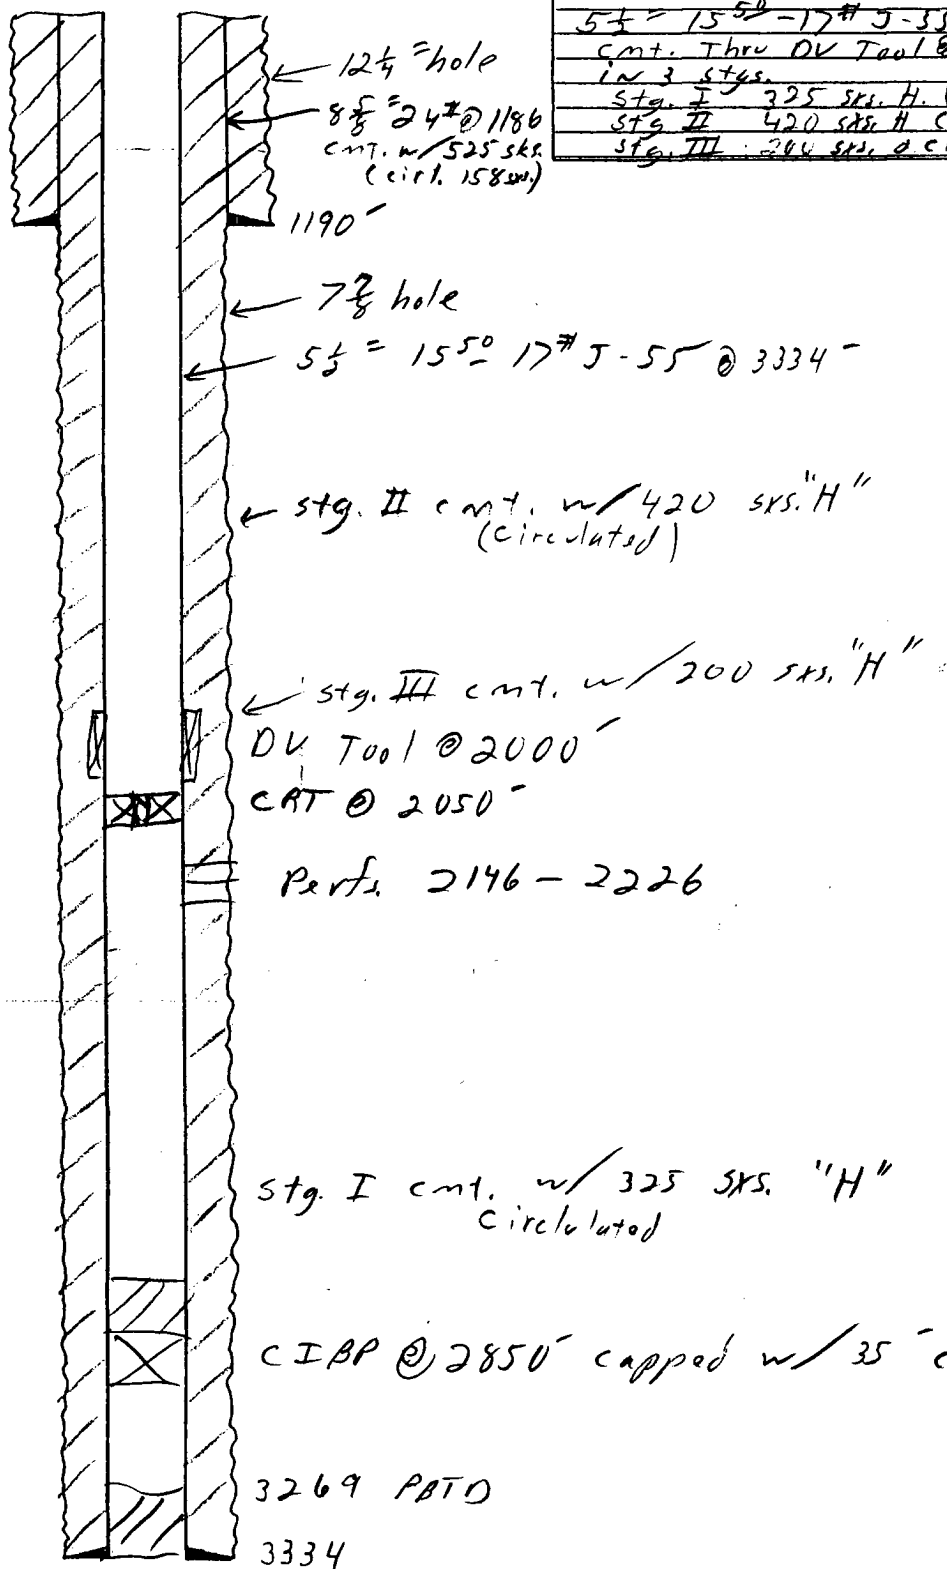 5 1/2" 15 50 - 17# J-55
cmt. Thru DV Tool @
in 3 stgs.
stg. I 325 sxs. H.
stg II 420 sxs. H C
stg. III 200 sxs.
12 1/4" hole
8 5/8" 24# @ 1186
cmt. w/ 525 sks.
(circ. 158 sxs.)
1190'
7 7/8 hole
5 1/2" 15 50 17# J-55 @ 3334'
stg. II cmt. w/ 420 sxs. "H"
(circulated)
stg. III cmt. w/ 200 sxs. "H"
DV Tool @ 2000'
CRT @ 2050'
Perfs. 2146 - 2226
stg. I cmt. w/ 325 sxs. "H"
Circlulated
CIBP @ 2850' capped w/ 35' c
3269 PBTD
3334